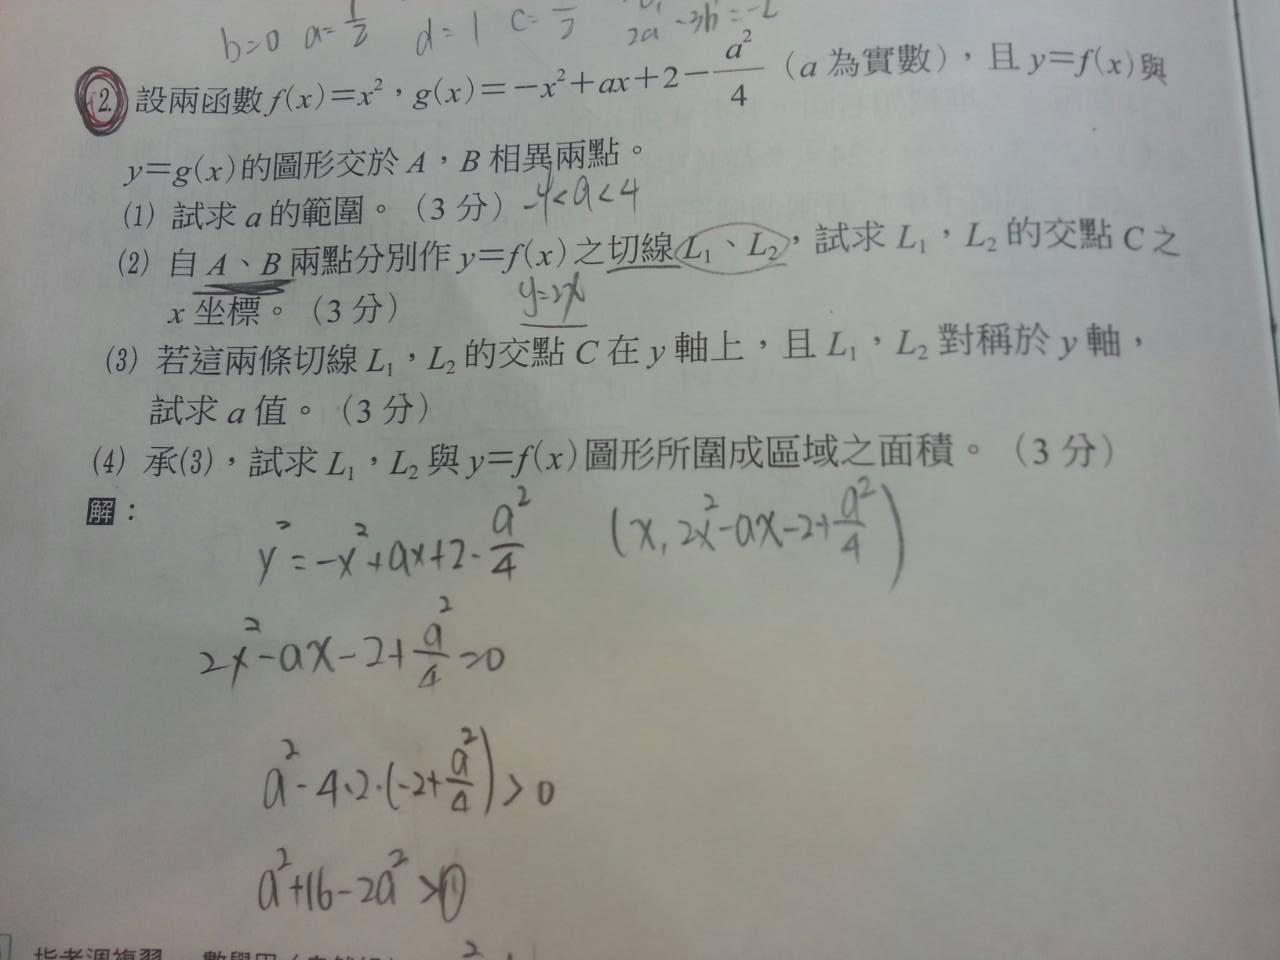 b=0 a=1/2 d=1 c= 2a-3b=-2
2. 設兩函數f(x)=x²,g(x)=-x²+ax+2-a²/4(a為實數),且y=f(x)與
y=g(x)的圖形交於A,B相異兩點。
(1) 試求a的範圍。(3分) -4<a<4
(2) 自A、B兩點分別作y=f(x)之切線L₁、L₂,試求L₁,L₂的交點C之
x坐標。(3分) y=2x
(3) 若這兩條切線L₁,L₂的交點C在y軸上,且L₁,L₂對稱於y軸,
試求a值。(3分)
(4) 承(3),試求L₁,L₂與y=f(x)圖形所圍成區域之面積。(3分)
解:
x²=-x²+ax+2-a²/4 (x, 2x²-ax-2+a²/4)
2x²-ax-2+a²/4=0
a²-4·2·(-2+a²/4)>0
a²+16-2a²>0
指考週複習 數學甲